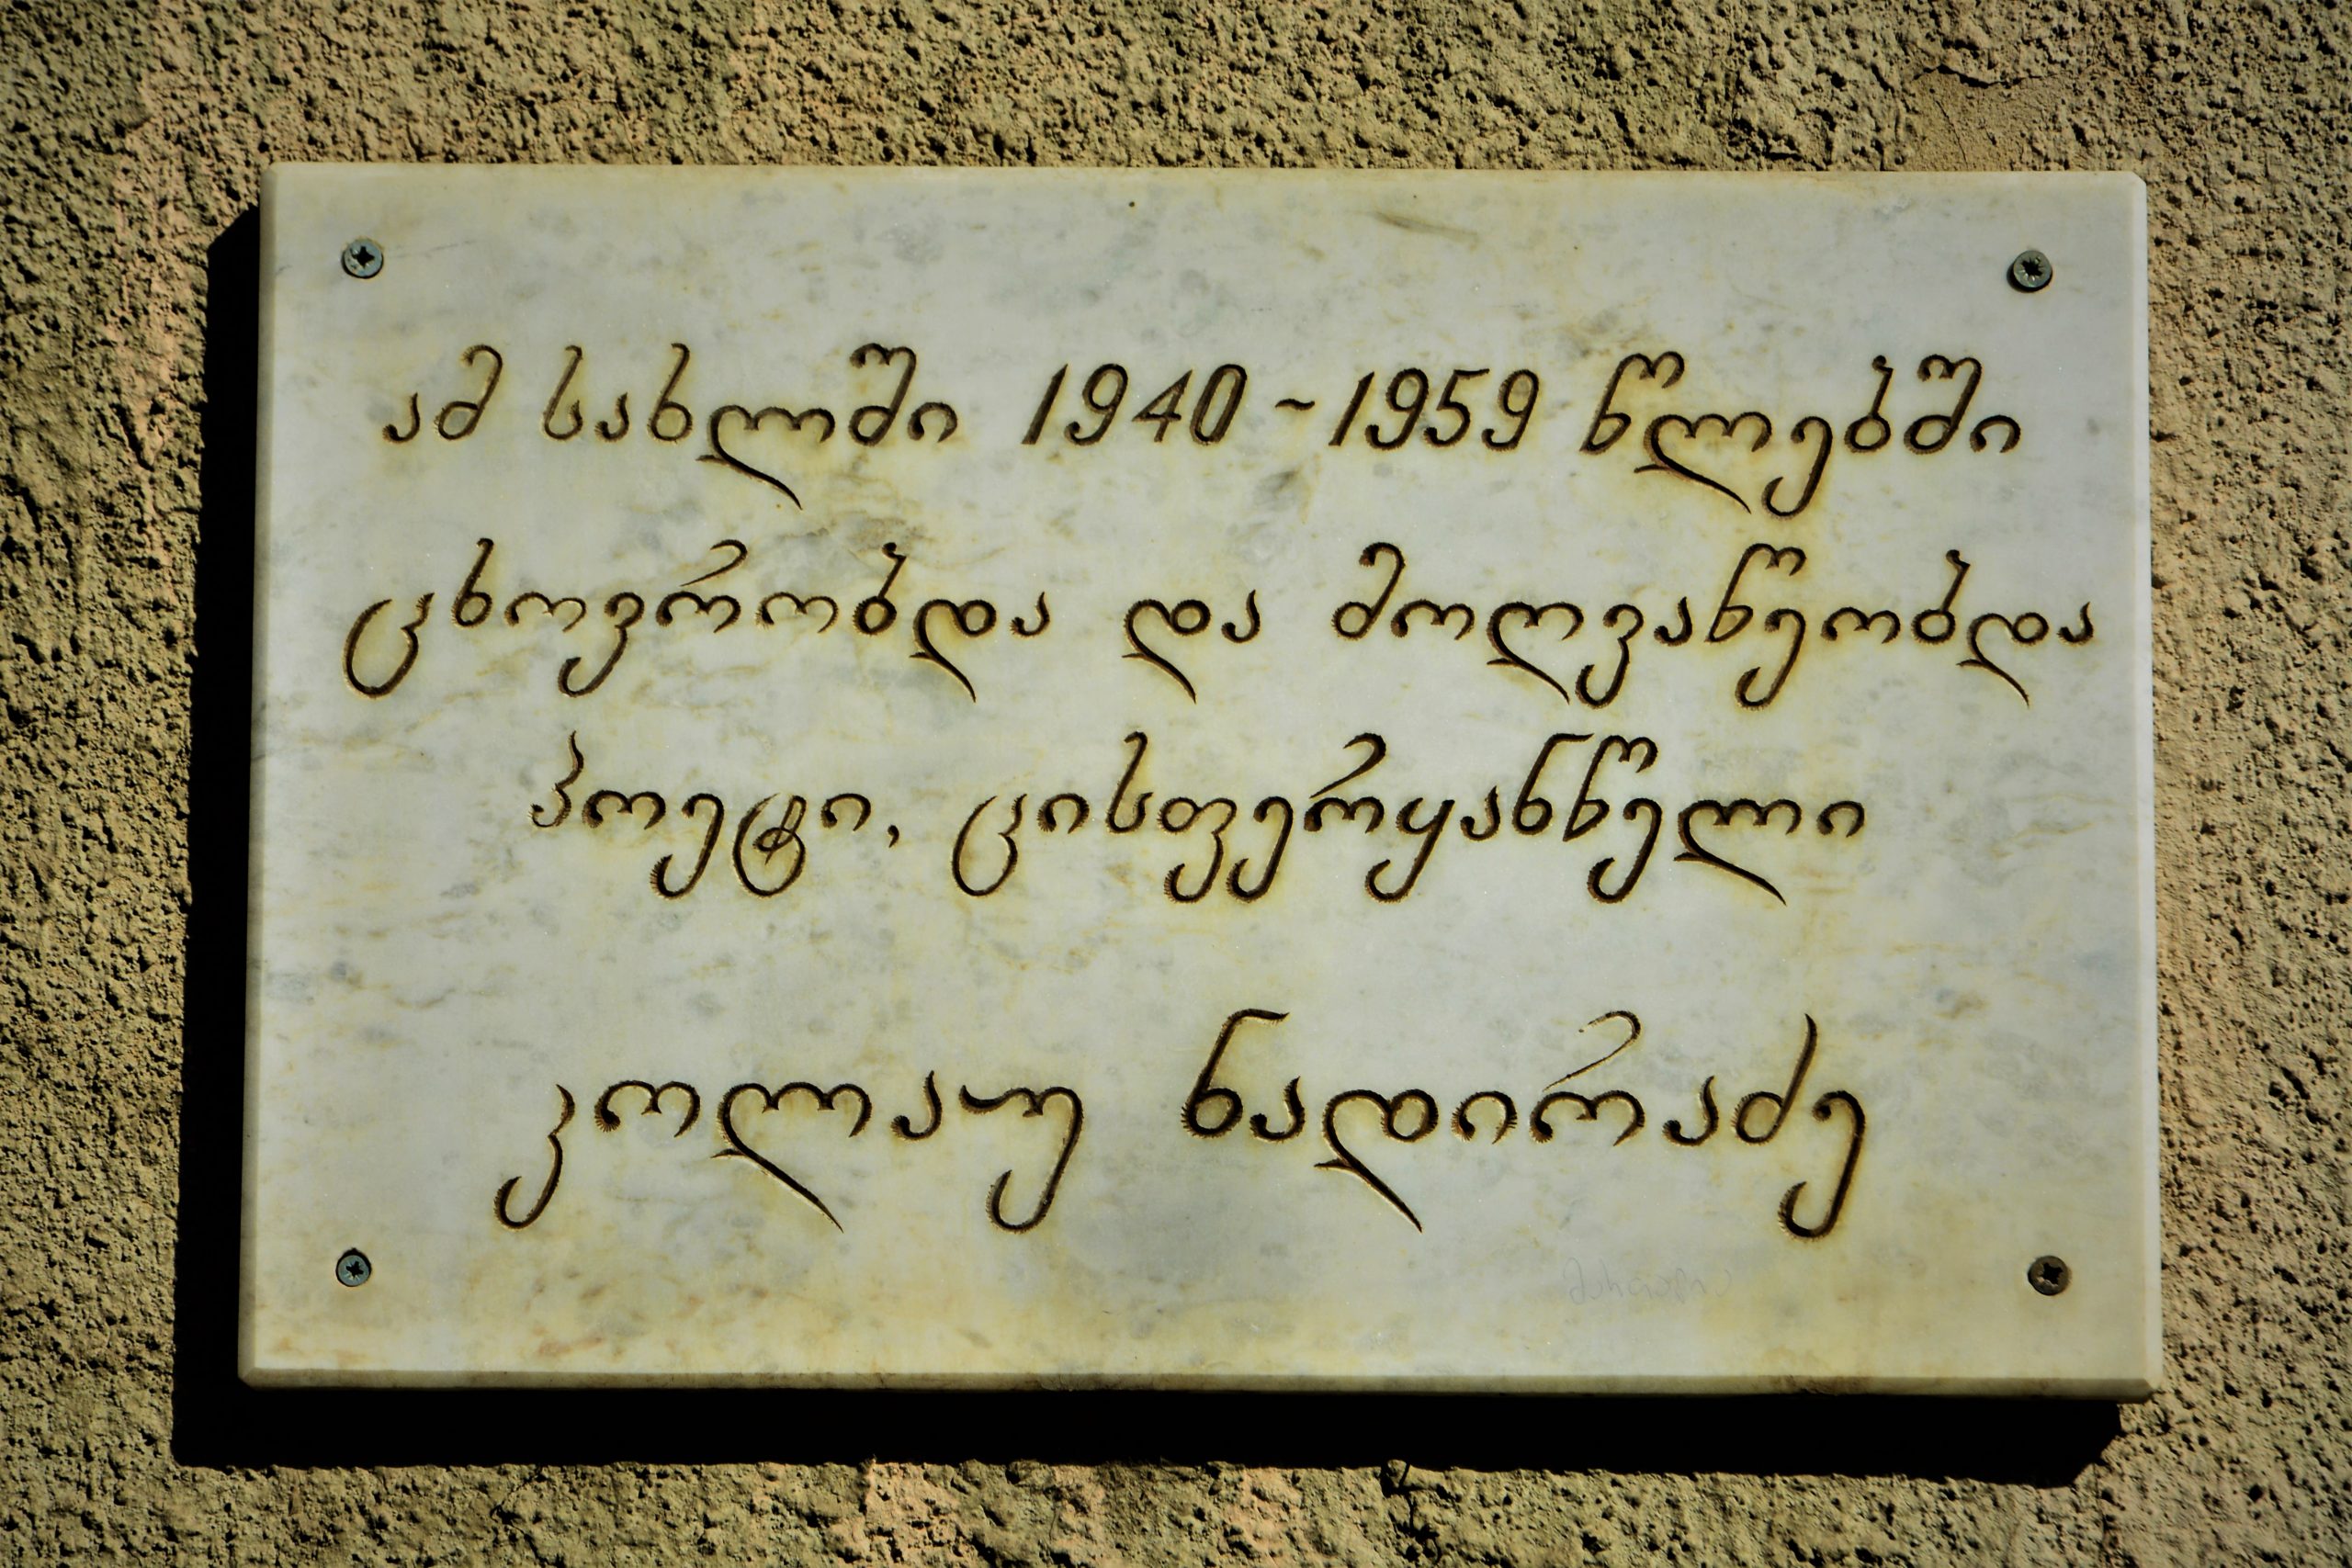 ამ სახლში 1940-1959 წლებში
ცხოვრობდა და მოღვაწეობდა
პოეტი, ცისფერყანწელი
კოლაუ ნადირაძე